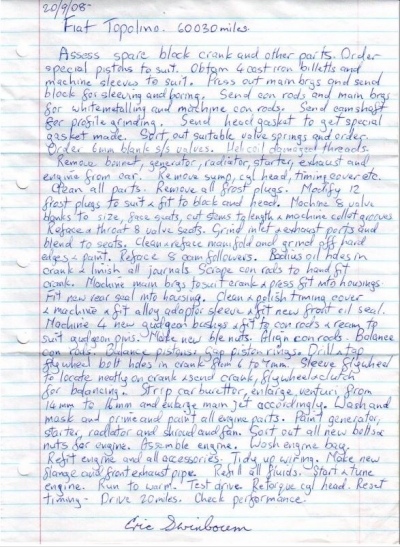 20/9/08-
Fiat Topolino. 60030 miles.
Assess spare block crank and other parts. Order
special pistons to suit. Obtain 4 cast iron billetts and
machine sleeves to suit. Press out main brgs and send
block for sleeving and boring. Send con rods and main brgs
for whitemetalling and machine con rods. Send camshaft
for profile grinding. Send head gasket to get special
gasket made. Sort out suitable valve springs and order.
Order 6mm blank s/s valves. Helicoil damaged threads.
Remove bonnet, generator, radiator, starter, exhaust and
engine from car. Remove sump, cyl head, timing cover etc.
Clean all parts. Remove all frost plugs. Modify 12
frost plugs to suit & fit to block and head. Machine 8 valve
blanks to size, face seats, cut stems to length & machine collet grooves
Reface & throat 8 valve seats. Grind inlet & exhaust ports and
blend to seats. Clean & reface manifold and grind off hard
edges & paint. Reface 8 cam followers. Radius oil holes in
crank & linish all journals. Scrape con rods to hand fit
crank. Machine main brgs to suit crank & press fit into housings
Fit new rear seal into housing. Clean & polish timing cover
& machine & fit alloy adaptor sleeve & fit new front oil seal.
Machine 4 new gudgeon bushes & fit to con rods & ream to
suit gudgeon pins. Make new b/e nuts. Align con rods. Balance
con rods. Balance pistons. Gap piston rings. Drill & tap
flywheel bolt holes in crank from 6 to 7mm. Sleeve flywheel
to locate neatly on crank & send crank, flywheel & clutch
for balancing. Strip carburettor, enlarge venturi from
14mm to 16mm and enlarge main jet accordingly. Wash and
mask and prime and paint all engine parts. Paint generator,
starter, radiator and shroud and fan. Sort out all new bolts &
nuts for engine. Assemble engine. Wash engine bay.
Refit engine and all accessories. Tidy up wiring. Make new
flange and front exhaust pipe. Refill all fluids. Start & tune
engine. Run to warm. Test drive. Retorque cyl head. Reset
timing - Drive 20 miles. Check performance.
Eric Swinbourn